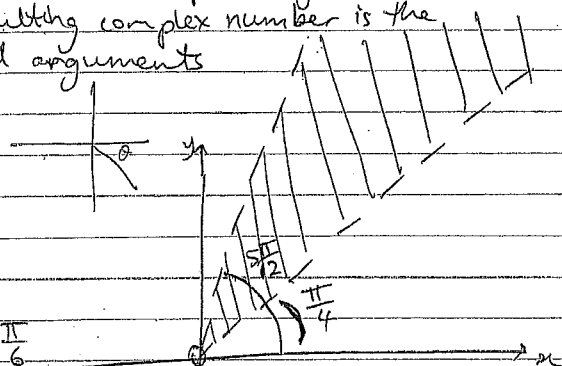 ulting complex number is the
d arguments
θ
y
5π/12
π/4
π/6
0
x